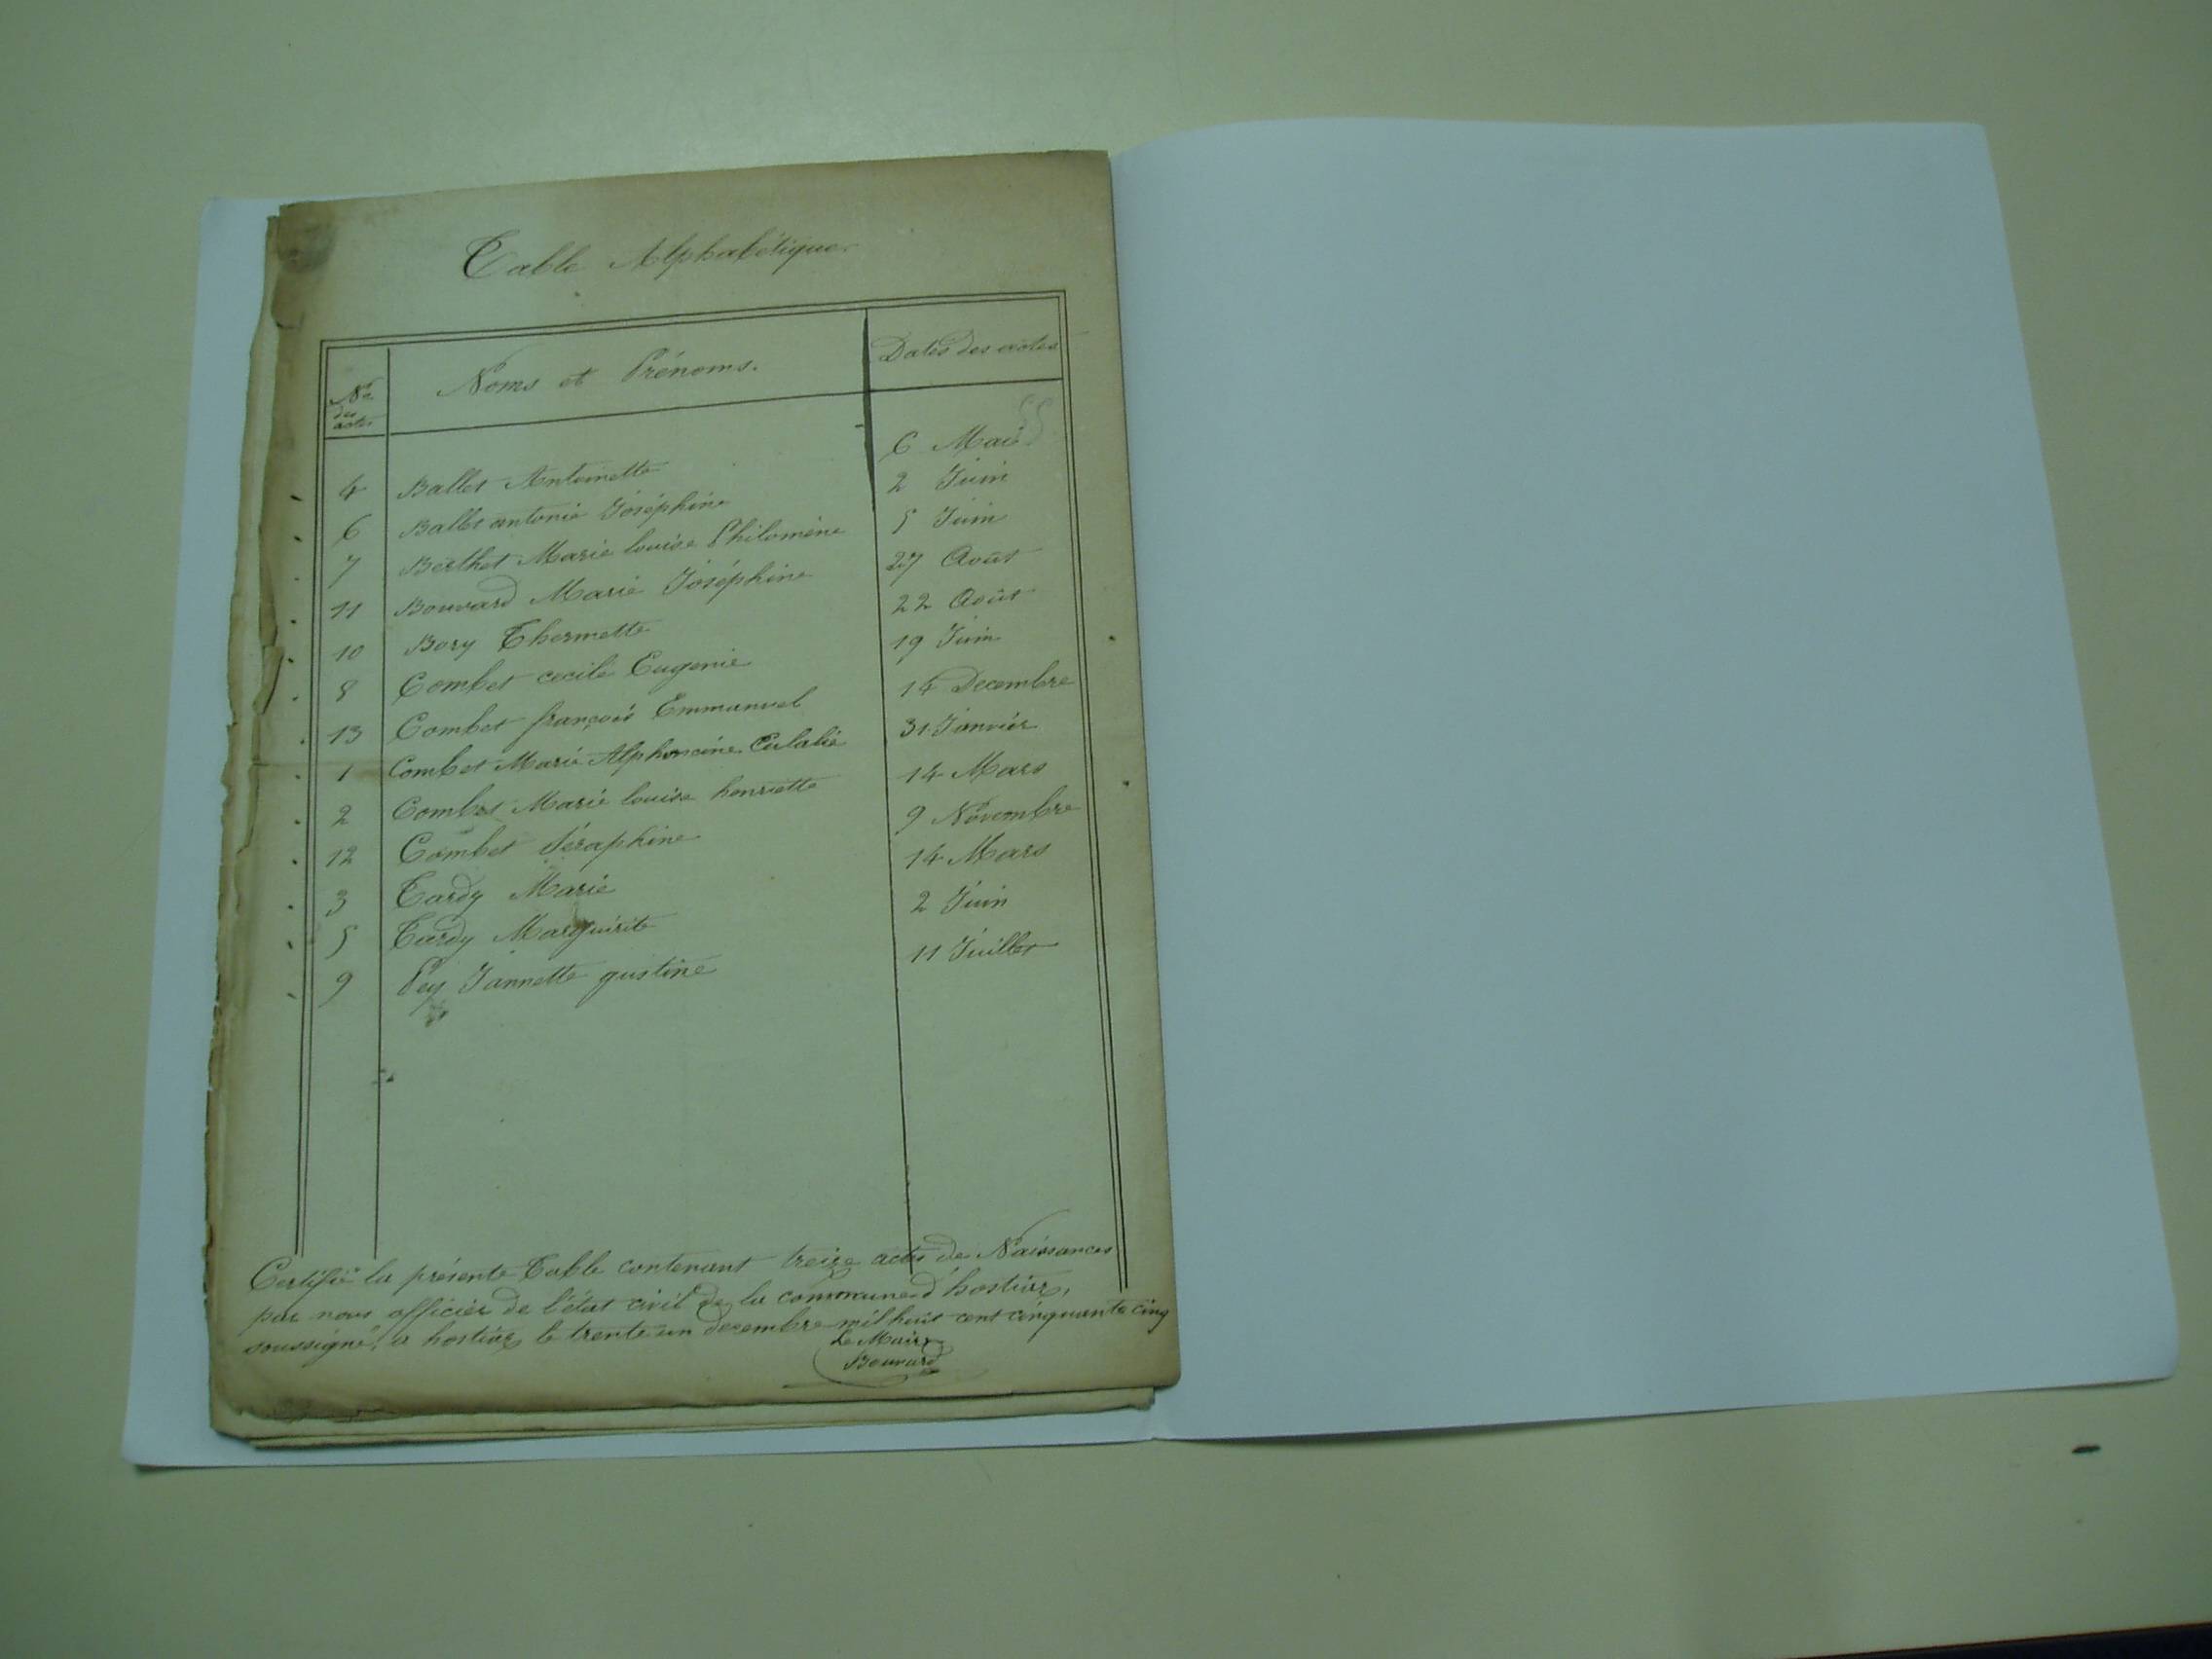 Table Alphabétique
Nos des actes Noms et Prénoms. Dates des actes
55
4 Ballet Antoinette 6 Mai
6 Ballet antonie Joséphine 2 Juin
7 Berthet Marie louise Philomène 5 Juin
11 Bouvard Marie Joséphine 27 Août
10 Bory Thermette 22 Août
8 Combet cecile Eugenie 19 Juin
13 Combet françois Emmanuel 14 Decembre
1 Combet Marie Alphonsine Eulalie 31 Janvier
2 Combet Marie louise henriette 14 Mars
12 Combet Séraphine 9 Novembre
3 Tardy Marie 14 Mars
5 Tardy Marguirite 2 Juin
9 Pey Jannette gustine 11 Juillet
Certifié la présente Table contenant treize actes de Naissances
par nous officier de l'état civil de la commune d'hostiaz,
soussigné, a hostiaz le trente un decembre mil huit cent cinquante cinq
Le Maire
Bouvard